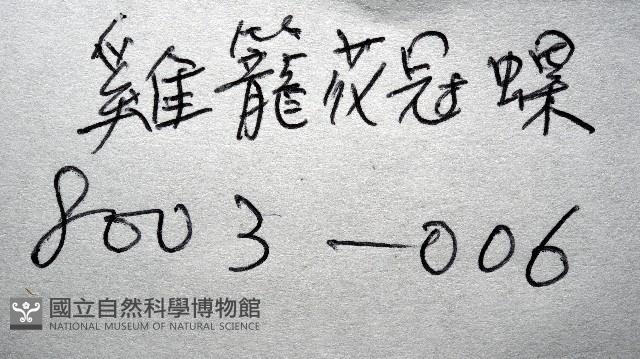 雞籠花冠蝶
8003-006
國立自然科學博物館
NATIONAL MUSEUM OF NATURAL SCIENCE